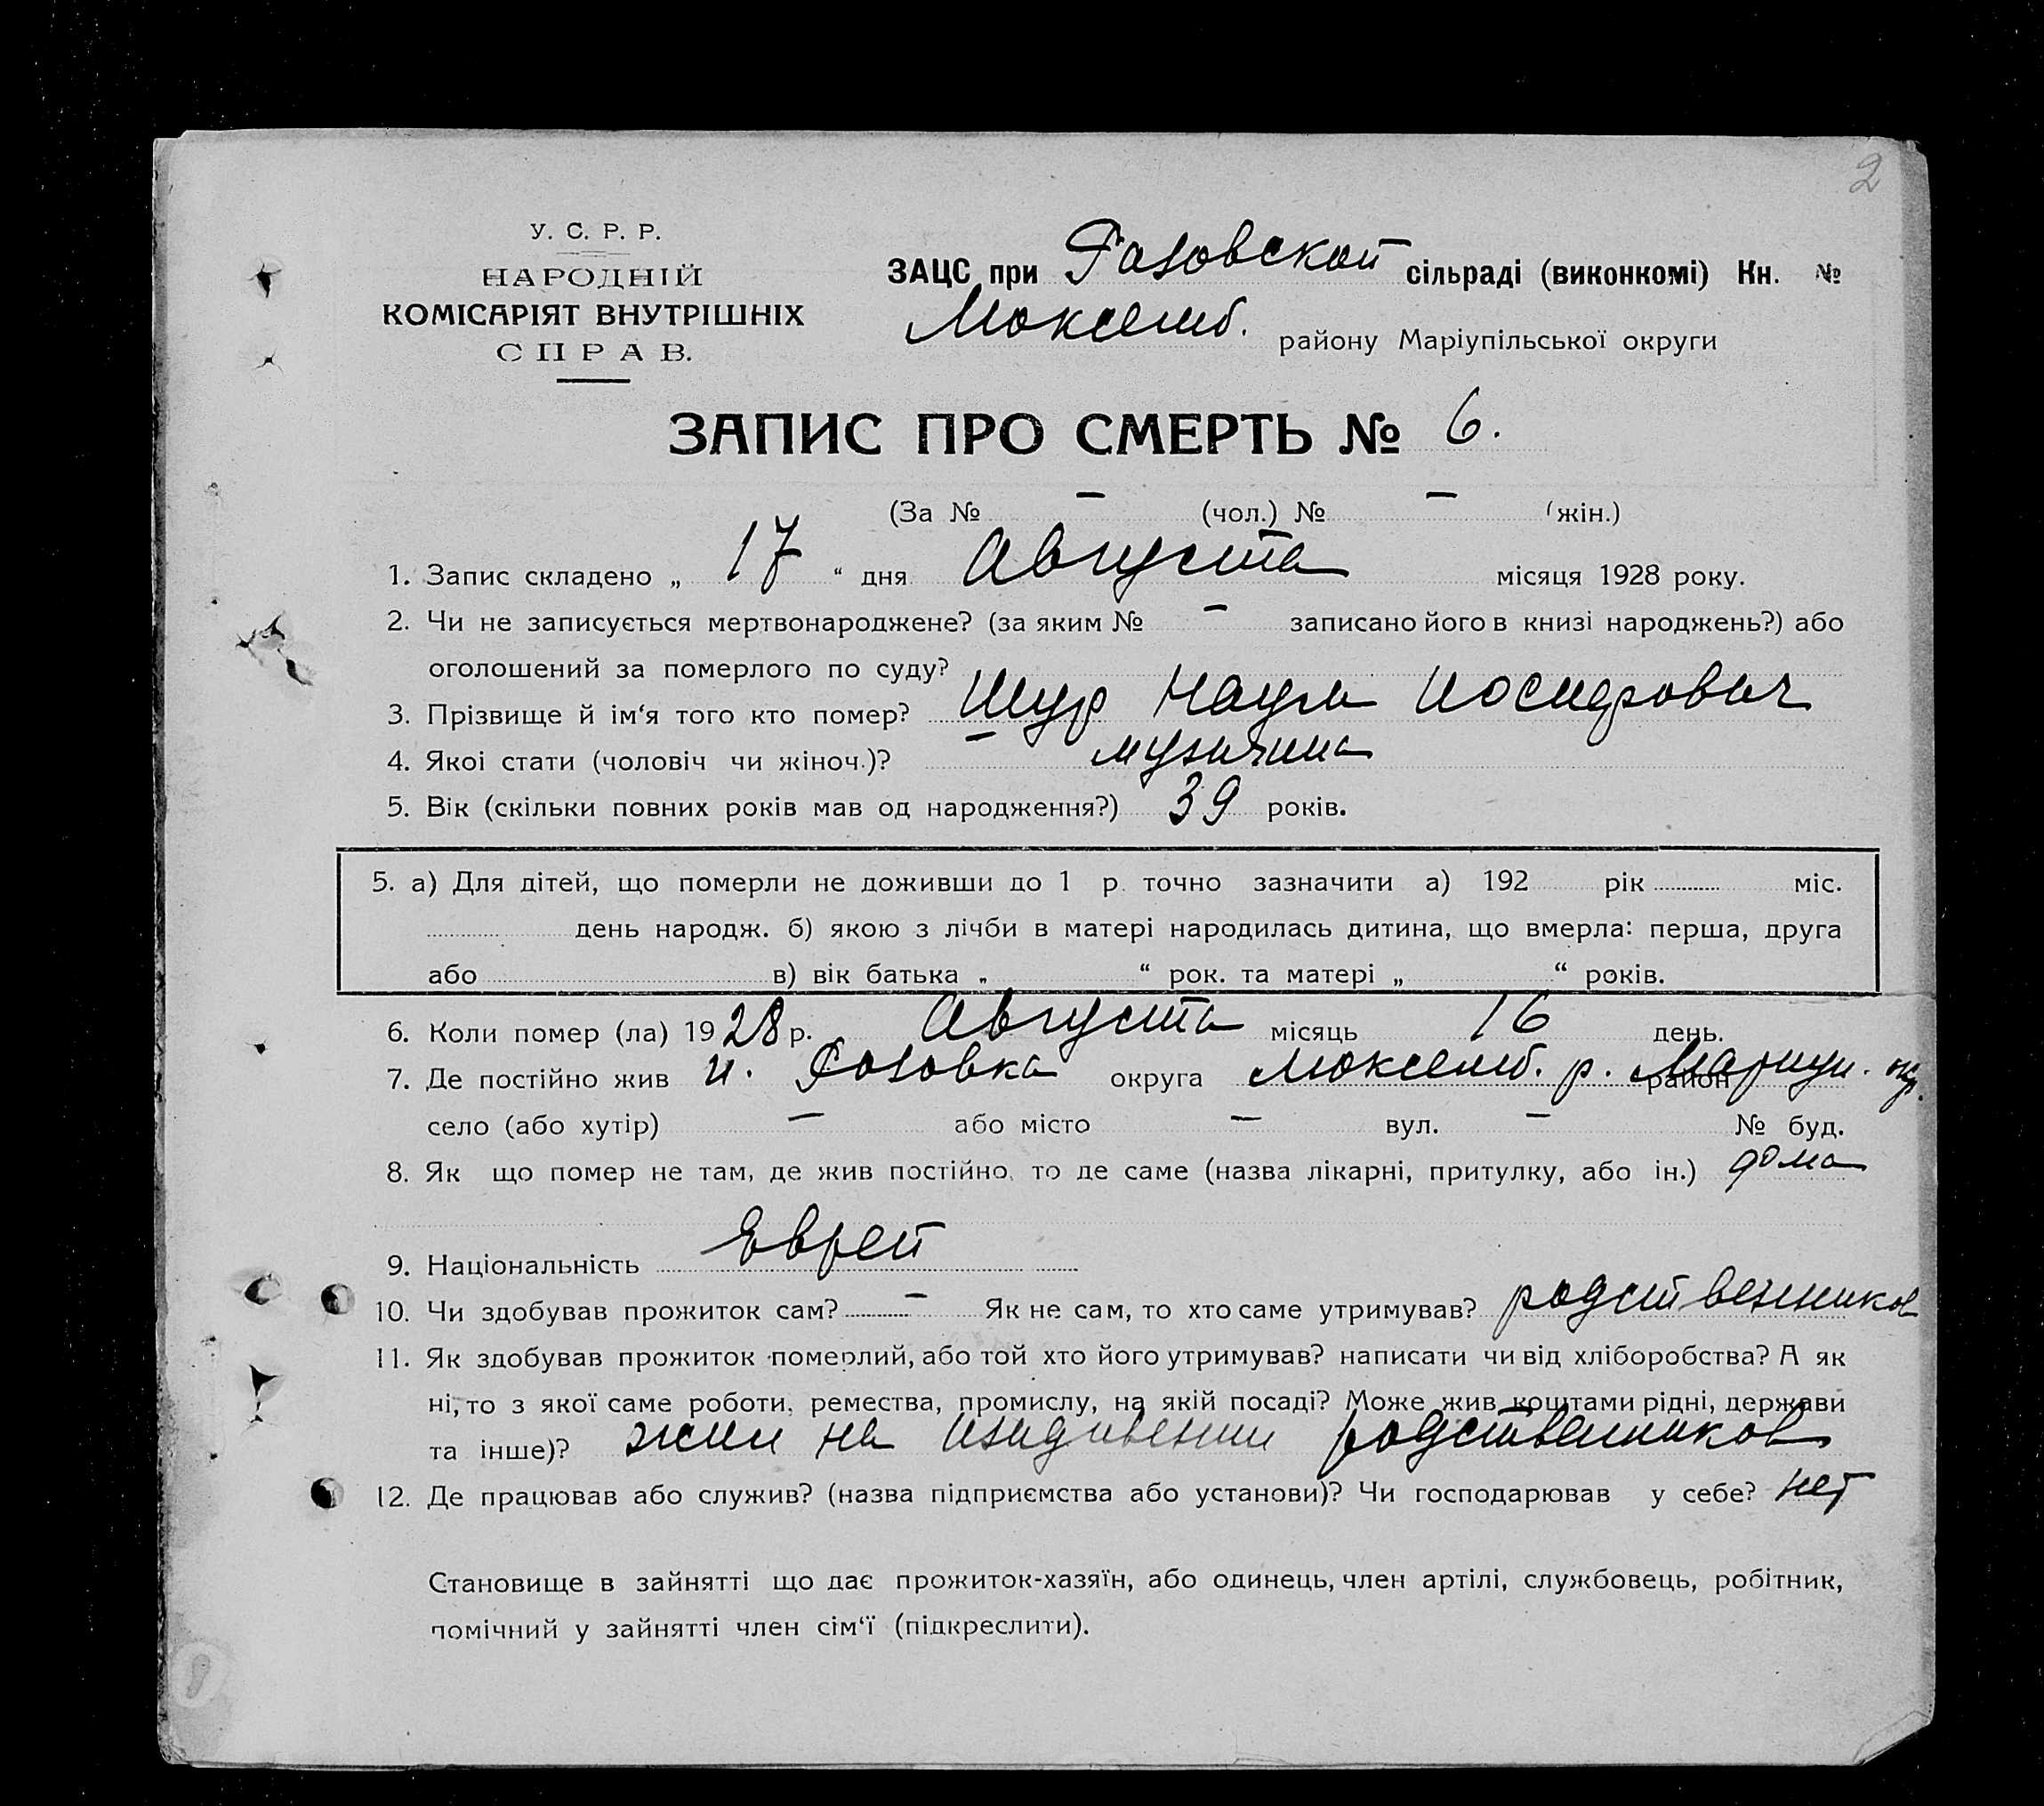 2
У. С. Р. Р.
НАРОДНІЙ
КОМІСАРІЯТ ВНУТРІШНІХ
СПРАВ.
ЗАЦС при Розовской сільраді (виконкомі) Кн. №
района Маріупільської округи
ЗАПИС ПРО СМЕРТЬ № 6.
(За № – (чол.) № – (жін.)
1. Запис складено „ 17 “ дня Августа місяця 1928 року.
2. Чи не записується мертвонароджене? (за яким № – записано його в книзі народжень?) або
оголошений за померлого по суду? –
3. Прізвище й ім‘я того кто помер? Шур Наум Иосифович
4. Якоі стати (чоловіч чи жіноч.)? мужчина
5. Вік (скільки повних років мав од народження?) 39 років.
5. а) Для дітей, що померли не доживши до 1 р. точно зазначити а) 192 рік міс.
день народж. б) якою з лічби в матері народилась дитина, що вмерла: перша, друга
або в) вік батька „ “ рок. та матері „ “ років.
6. Коли помер (ла) 1928 р. Августа місяць 16 день.
7. Де постійно жив Розовка округа р. Мариуп. район окр.
село (або хутір) – або місто – вул. – № буд.
8. Як що помер не там, де жив постійно, то де саме (назва лікарні, притулку, або ін.) дома
9. Національність Еврей
10. Чи здобував прожиток сам? – Як не сам, то хто саме утримував? родственников
11. Як здобував прожиток померлий, або той хто його утримував? написати чи від хліборобства? А як
ні, то з якої саме роботи, ремества, промислу, на якій посаді? Може жив коштами рідні, держави
та інше)? жил на иждивении родственников
12. Де працював або служив? (назва підприємства або установи)? Чи господарював у себе? нет
Становище в зайнятті що дає прожиток-хазяїн, або одинець, член артілі, службовець, робітник,
помічний у зайнятті член сім‘ї (підкреслити).